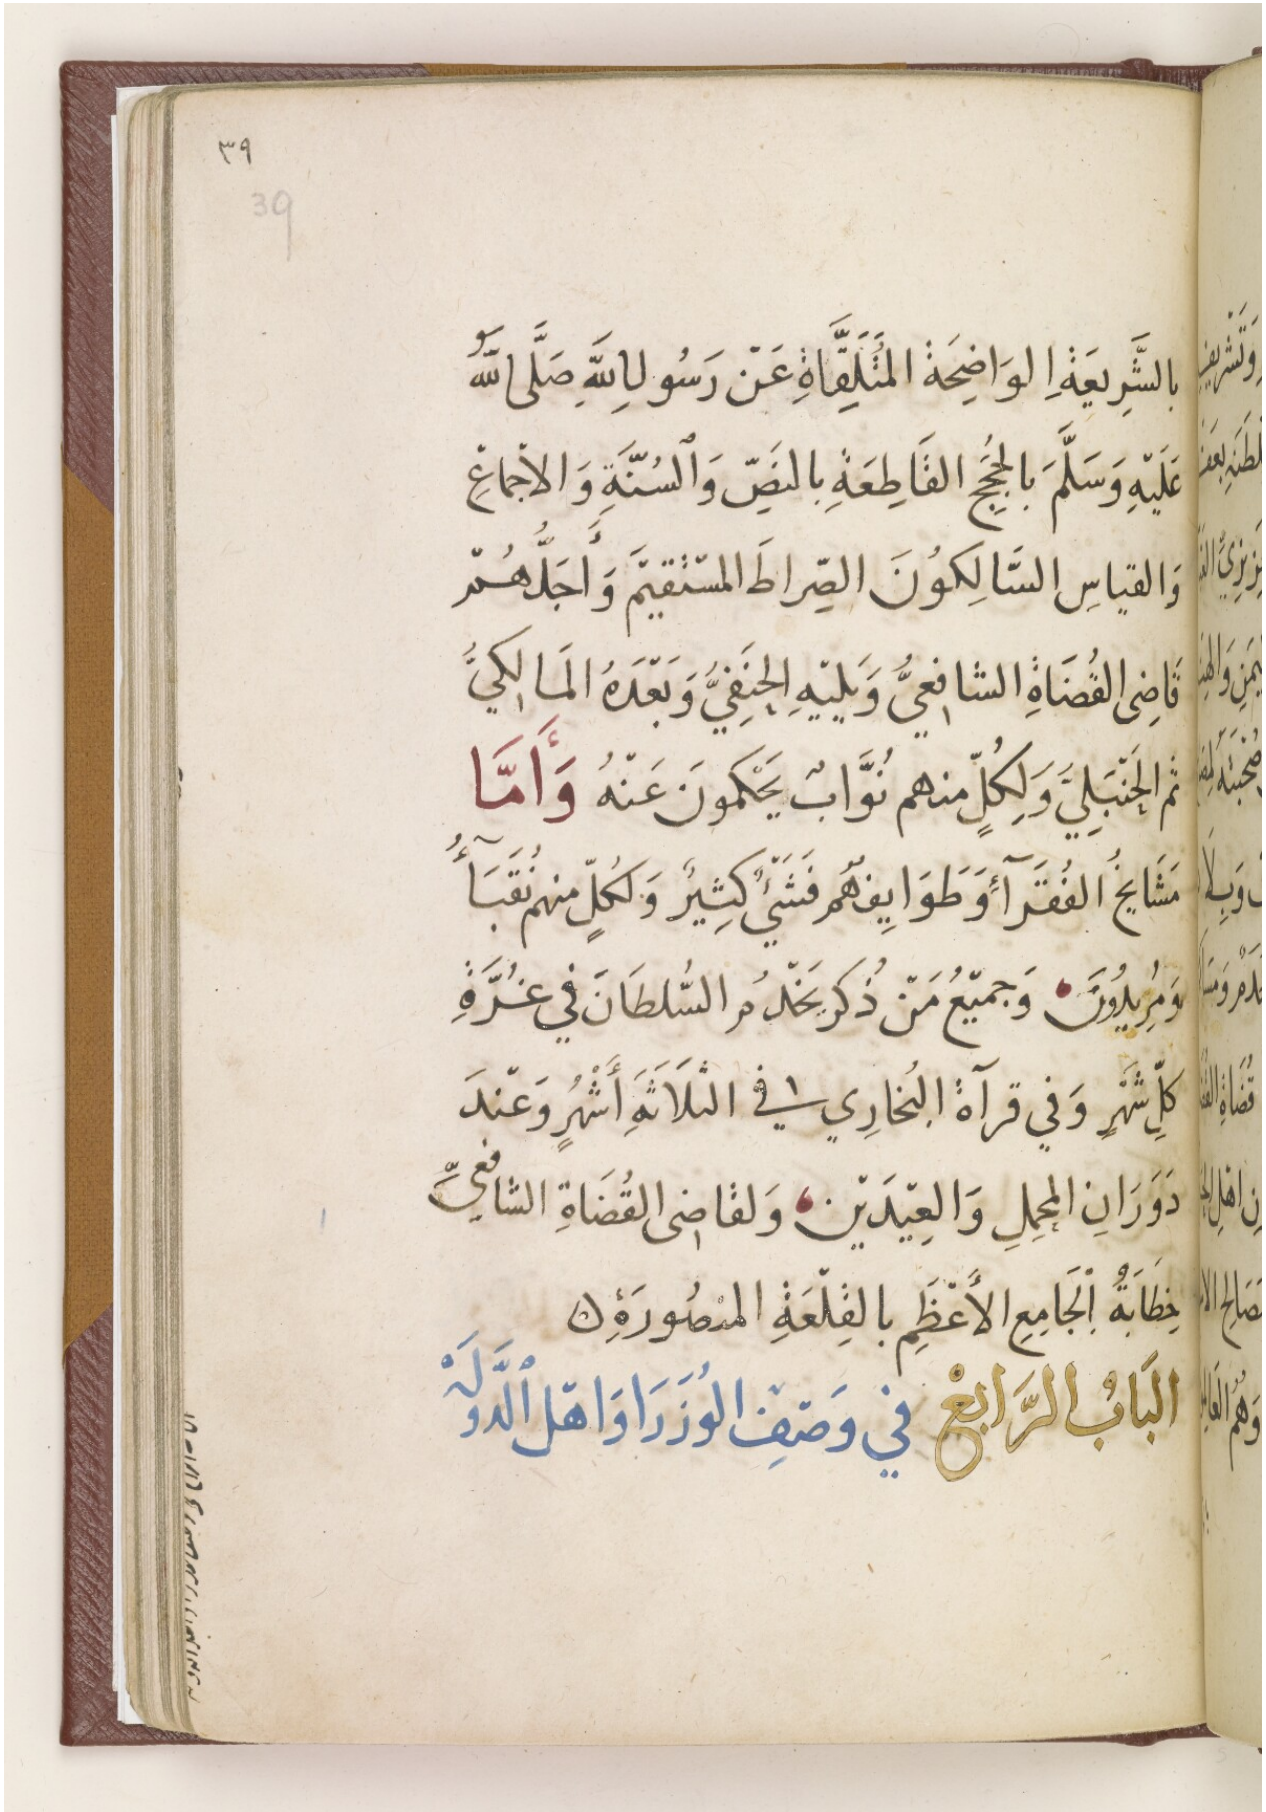 ٣٩
39
بالشَّرِيعَةِ الوَاضِحَة المُتَلَقَّاةِ عَنْ رَسُولِ اللَّهِ صَلَّى اللَّهُ
عَلَيْهِ وَسَلَّمَ بالحُجَجِ القَاطِعَةِ بالنَصِّ وَالسُنَّةِ وَالاجْمَاعِ
وَالقياسِ السَّالِكُونَ الصِّراطَ المسْتَقيمَ وَأَجَلُّهُمْ
قَاضِى القُضَاةِ الشافِعيُّ وَيَليْهِ الحَنَفِيُّ وَبَعْدَهُ المَالِكيُّ
ثم الحَنْبَلِيُّ وَلِكُلٍّ منهم نُوَّابٌ يَحْكمُونَ عَنْهُ وَأَمَّا
مَشَايخُ الفُقَرَآءِ وَطَوَايِفهُم فَشَيْءٌ كَثِيرٌ وَلكُلٍّ منهم نُقَبَآءُ
وَمُرِيدُونَ وَجميْعُ مَنْ ذُكر يَخْدمُ السُّلطَانَ في غُرَّةِ
كلِّ شَهْرٍ وَفي قرآة البُخارِي في الثلَاثَةِ أَشْهُرٍ وَعنْدَ
دَوَرَانِ المحمِلِ وَالعِيْدَيْن وَلقاضِى القُضَاةِ الشافعيِّ
خِطَابَةُ الجَامِعِ الأَعْظَمِ بالقَلْعَةِ المنصُورَةِ
البَابُ الرَّابعْ في وَصْفِ الوُزَرَا وَاهْل الدَّوْلَهْ